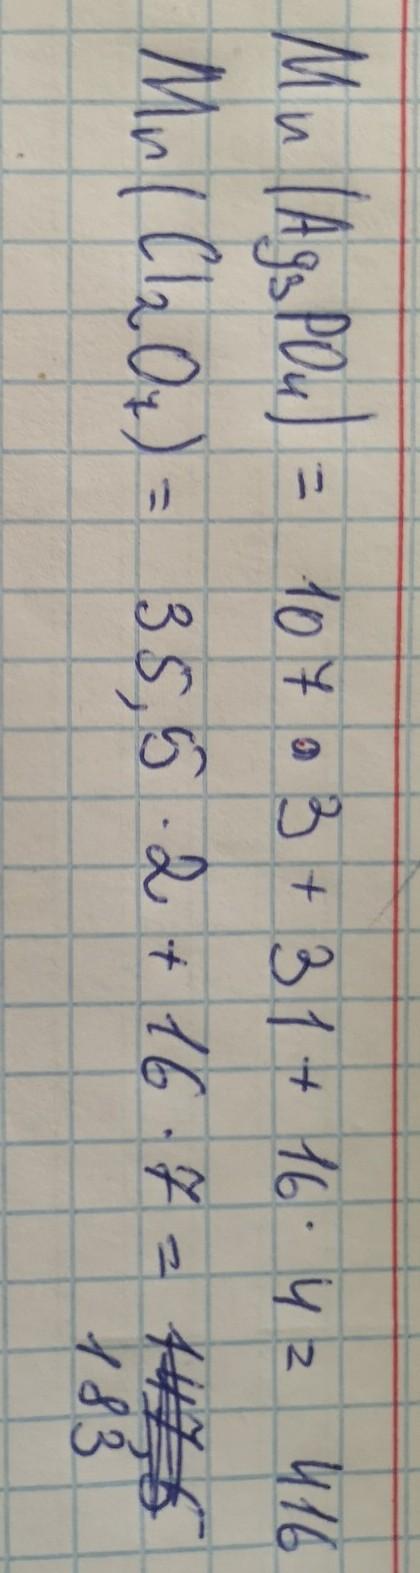 Mr (Ag₃PO₄) = 107 · 3 + 31 + 16 · 4 = 416
Mr (Cl₂O₇) = 35,5 · 2 + 16 · 7 = 183